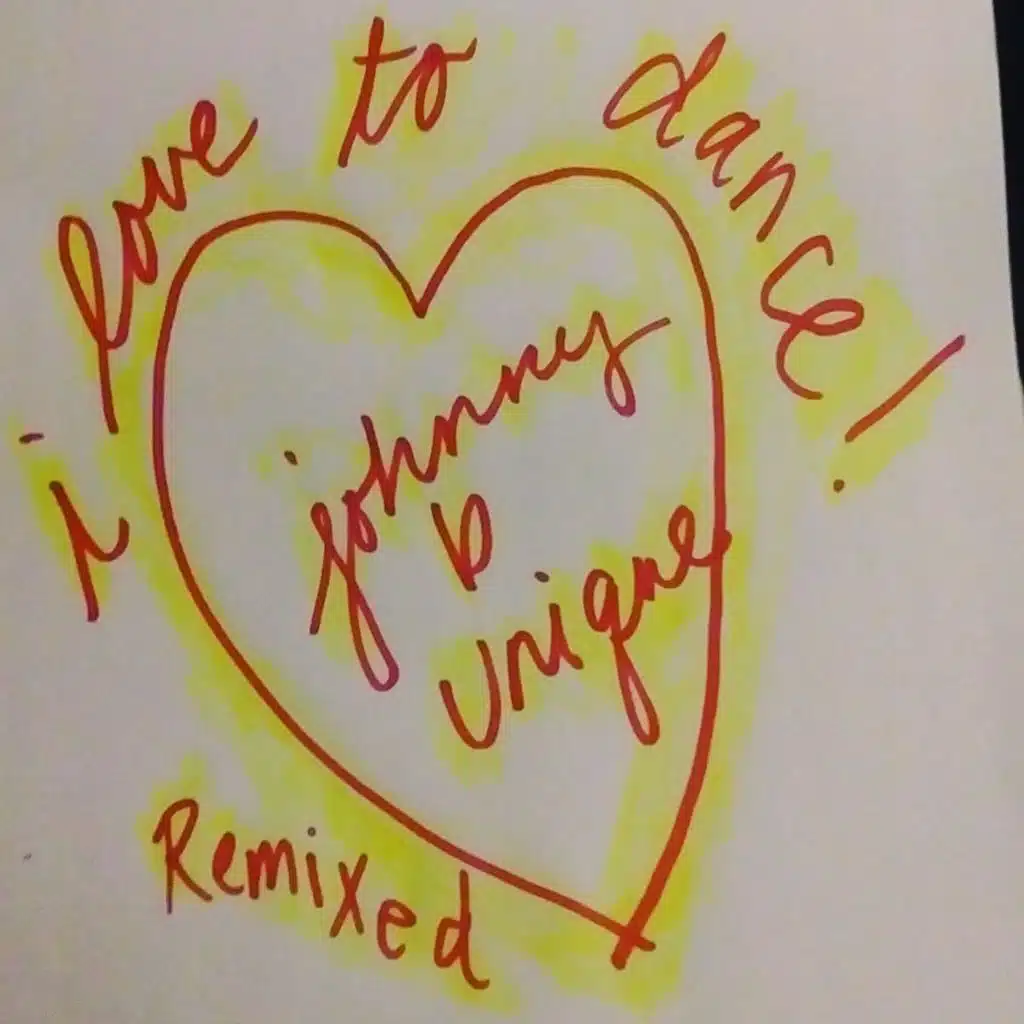 i love to dance!
johnny
b
unique
Remixed